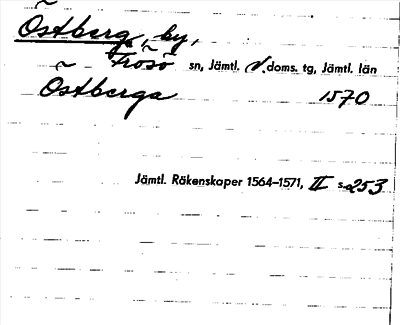 Östberg, by,
Frösö sn, Jämtl. V. doms. tg, Jämtl. län
Östberga 1570
Jämtl. Räkenskaper 1564–1571, II s. 253